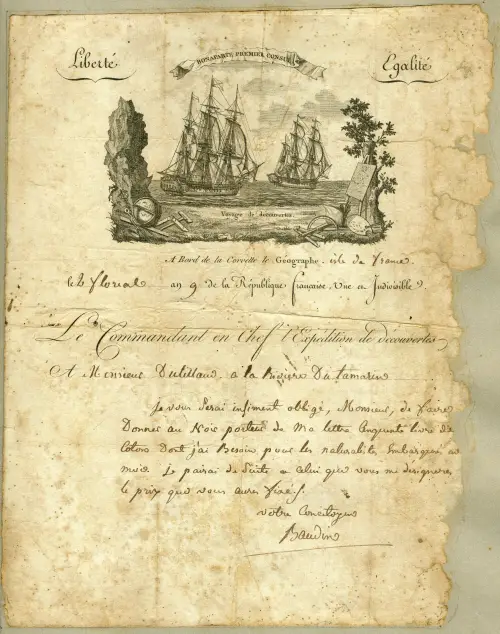 Liberté
BONAPARTE, PREMIER CONSUL
Egalité
Voyages de découvertes.
A Bord de la Corvette le Géographe. isle de france
le 2 floréal an 9 de la République française, Une et Indivisible.
Le Commandant en Chef l'Expédition de découvertes
A Monsieur a la Rivière Du tamarin
Je vous Serai infiment obligé, Monsieur, de faire
Donner au Noir porteur de Ma lettre Cinquante livre de
Coton Dont j'ai Besoin pour les naturalistes Embarqués
Le pairai de Suite a Celui que vous me designeres
le prix que vous aures fixés.
votre Concitoyen
Baudin